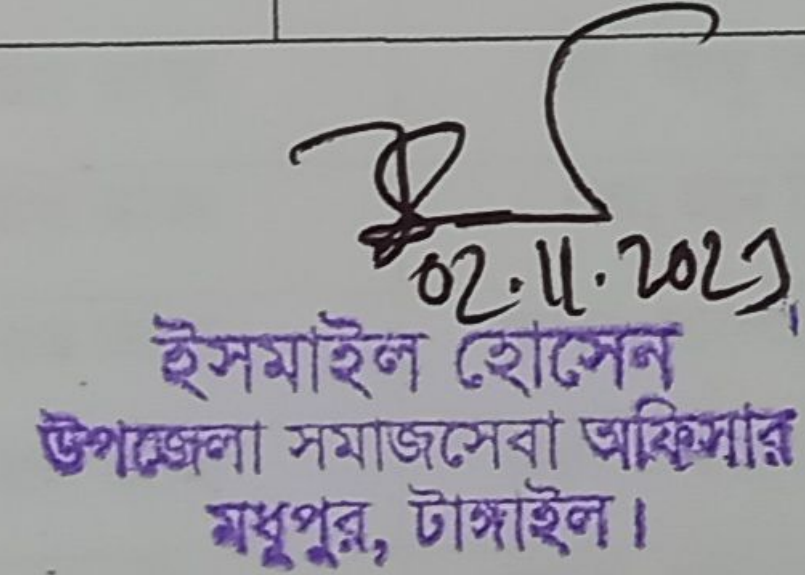 02.11.202১
ইসমাইল হোসেন
উপজেলা সমাজসেবা অফিসার
মধুপুর, টাঙ্গাইল।